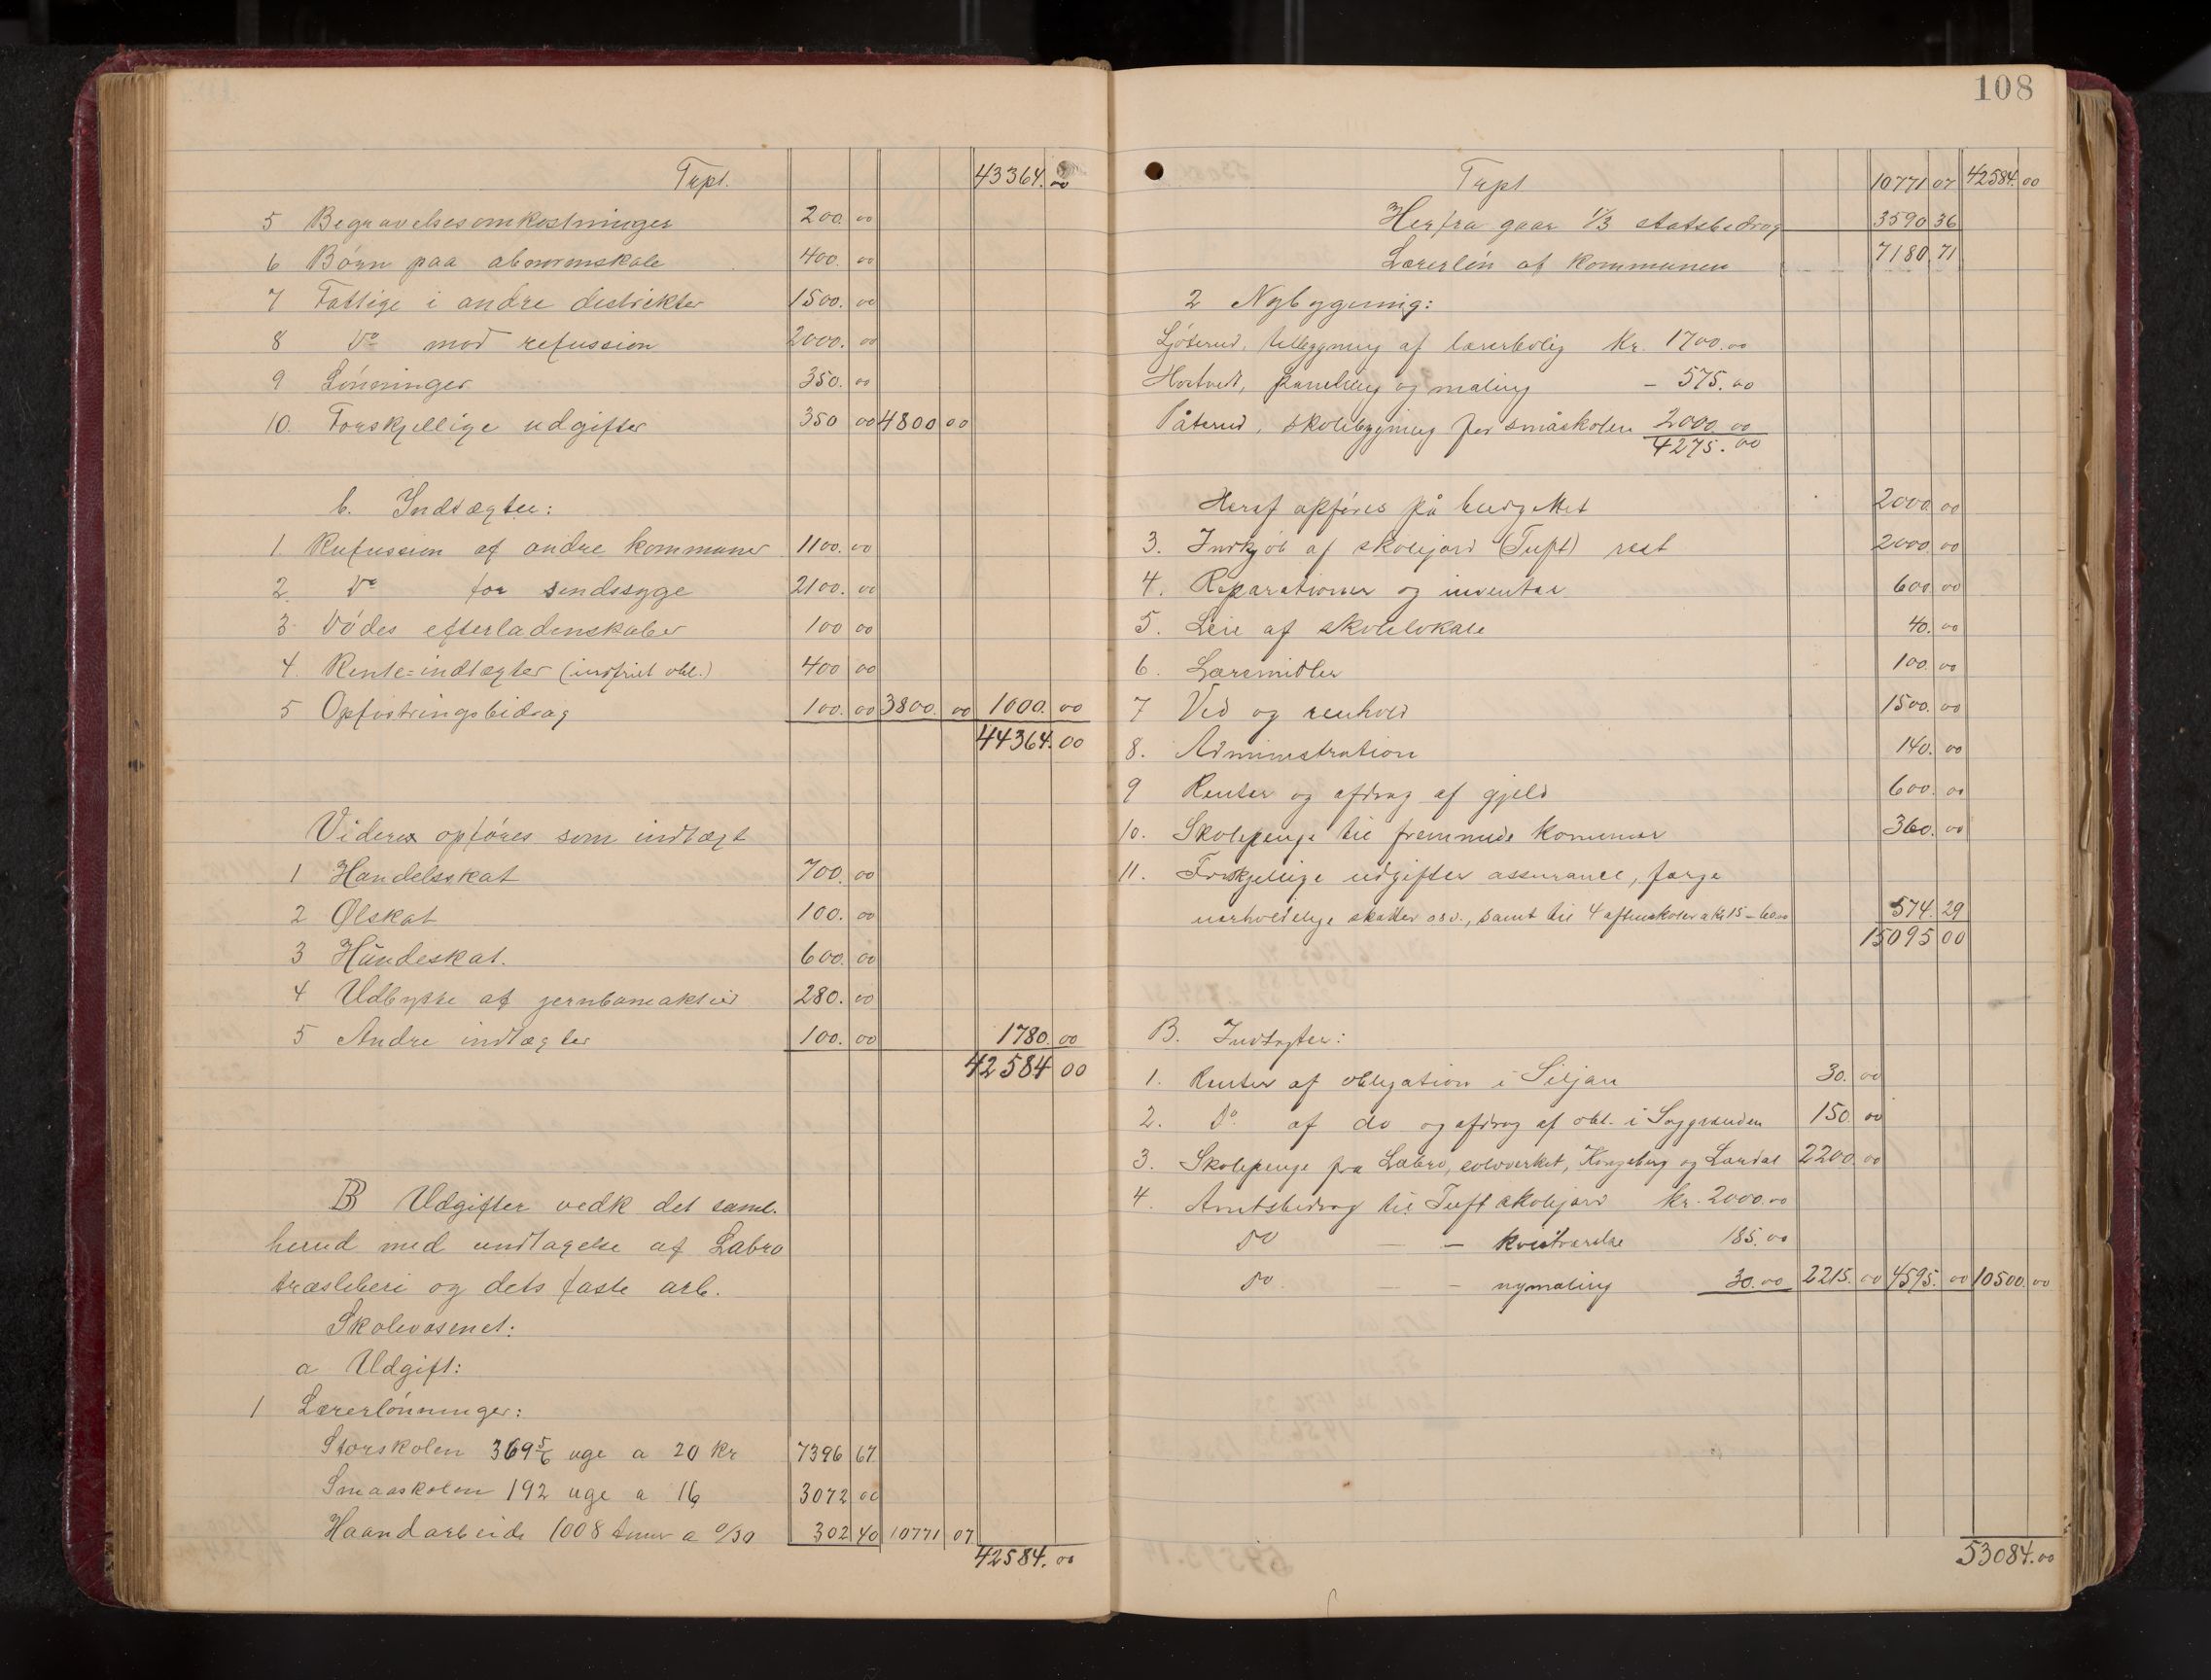 Trpt. 43364.00
5 Begravelsesomkostninger 200.00
6 Børn paa abnormskole 400.00
7 Fattige i andre distrikter 1500.00
8 Do mod refussion 2000.00
9 Lønninger 350.00
10. Forskjellige udgifter 350 00 4800 00
b. Indtægter:
1. Refussion af andre kommuner 1100.00
2. Do for sindssyge 2100.00
3 Dødes efterladenskaber 100 00
4. Rente-indtægter (indfriet obl.) 400 00
5 Opfostringsbidrag 100.00 3800.00 1000.00
44364.00
Videre opføres som indtægt
1 Handelsskat 700.00
2 Ølskat 100.00
3 Hundeskat. 600.00
4 Udbytte af jernbaneaktier 280.00
5 Andre indtægter 100.00 1780.00
42584 00
B Udgifter vedk det saml.
herred med undtagelse af Labro
træsliberi og dets faste arb.
Skolevæsenet:
a Udgift:
1 Lærerlønninger:
Storskolen 369 5/6 uge a 20 kr 7396 67
Smaaskolen 192 uge a 16 3072 00
Haandarbeide 1008 timer a 0/30 302 40 10771 07
42584.00
108
Trpt 10771 07 42584.00
Herfra gaar 1/3 statsbidrag 3590 36
Lærerløn af kommunen 7180 71
2 Nybygning:
tilbygning af lærerbolig Kr. 1700.00
Hostvedt, paneling og maling – 575.00
skolebygning for småskolen 2000.00
4275.00
Heraf opføres på budgettet 2000.00
3. Indkjøb af skolejord (Tuft) rest 2000.00
4. Reparationer og inventar 600.00
5. Leie af skolelokale 40.00
6. Læremidler 100.00
7 Ved og renhold 1500.00
8. Administration 140.00
9 Renter og afdrag af gjeld 600.00
10. Skolepenge til fremmede kommuner 360.00
11. Forskjellige udgifter assurance,
skatter osv., samt til 4 aftenskoler a kr 15 – 60.00 574.29
15095 00
B. Indtægter:
1. Renter af obligation i Siljan 30.00
2. Do af do og afdrag af obl. i Sæggrenden 150.00
3. Skolepenge fra Labro, sølvverket, Kongsberg og Lardal 2200.00
4. Amtsbidrag til Tuft skolejord kr. 2000.00
Do — – kvistværelse 185.00
Do. — – nymaling 30.00 2215.00 4595.00 10500.00
53084.00